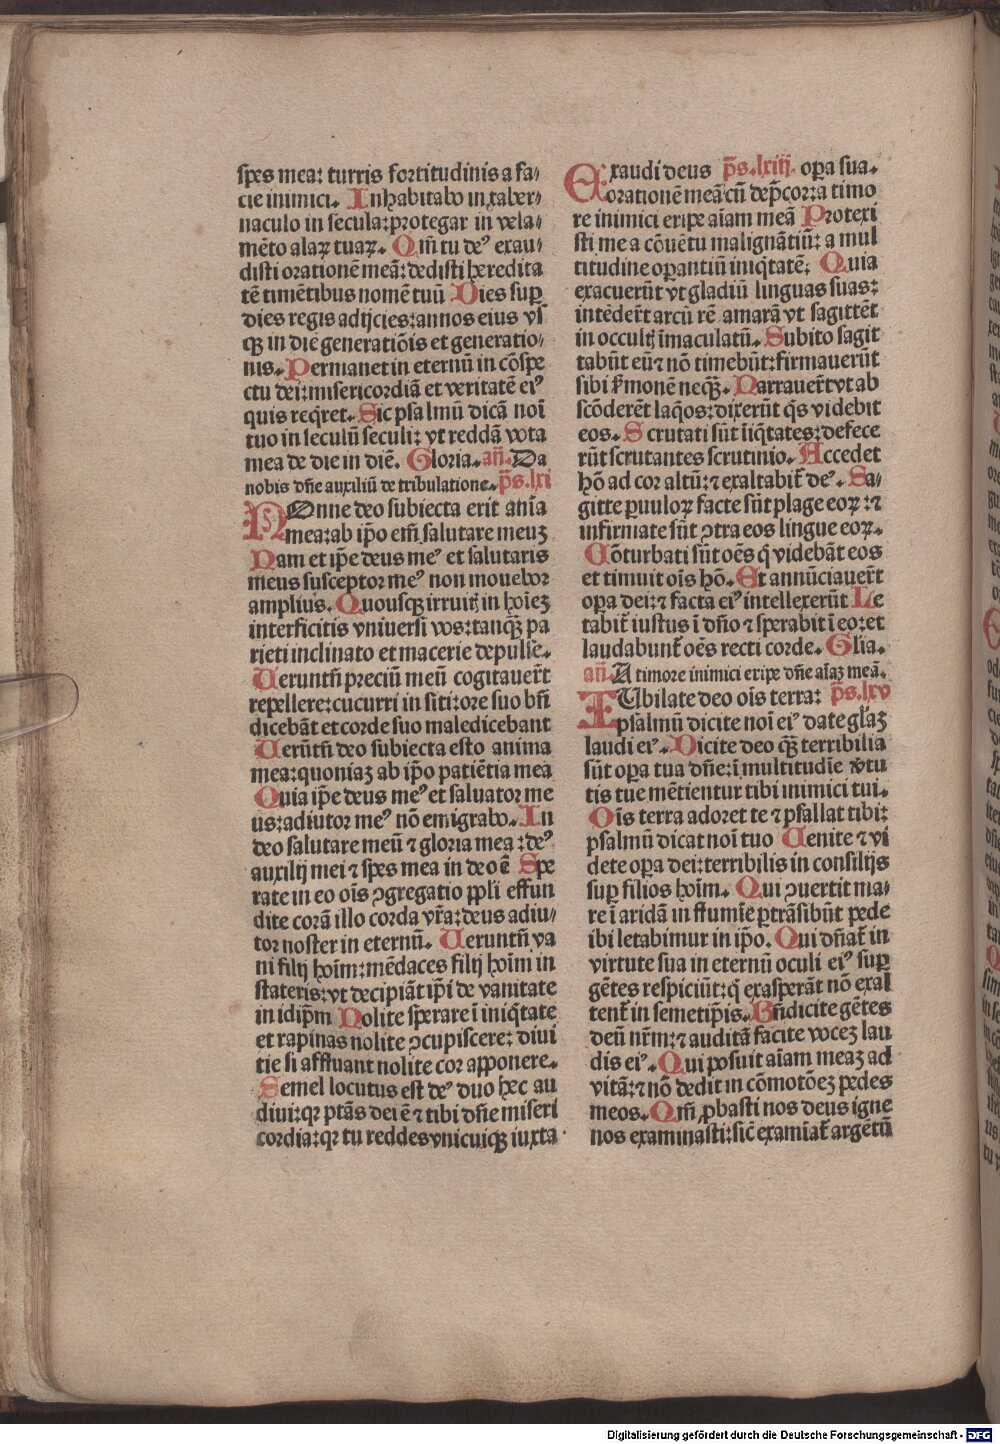 spes mea: turris fortitudinis a fa/
cie inimici. Inhabitabo in taber/
naculo in secula: protegar in vela/
mēto alaꝝ tuaꝝ. Qm̄ tu deꝰ exau/
disti orationē meā: dedisti heredita
tē timētibus nomē tuū Dies suꝑ
dies regis adijcies: annos eius vſ
qꝫ in diē generatiōis et generatio/
nis. Permanet in eternū in cōspe
ctu dei: misericordiā et veritatē eiꝰ
quis reqret. Sic psalmū dicā noī
tuo in seculū seculi: vt reddā vota
mea de die in diē. Gloria. añ. Da
nobis dñe auxiliū de tribulatione. p̄s. lxi
NOnne deo subiecta erit anīa
mea: ab ip̄o em̄ salutare meuꝫ
Nam et ip̄e deus meꝰ et salutaris
meus susceptor meꝰ non mouebor
amplius. Quousqꝫ irruitꝭ in hoīeꝫ
interficitis vniuersi vos: tanqꝫ̄ pa
rieti inclinato et macerie depulse.
Ueruntn̄ preciū meū cogitauer̄t
repellere: cucurri in siti: ore suo bn̄
dicebāt et corde suo maledicebant
Uerūtn̄ deo subiecta esto anima
mea: quoniaꝫ ab ip̄o patiētia mea
Quia ip̄e deus meꝰ et saluator me
us: adiutor meꝰ nō emigrabo. In
deo salutare meū ⁊ gloria mea: deꝰ
auxilij mei ⁊ spes mea in deo ē Spe
rate in eo oīs ꝯgregatio ppl̄i effun
dite corā illo corda vr̄a: deus adiu/
tor noster in eternū. Ueruntn̄ va
ni filij hoīm: mēdaces filij hoīm in
stateris: vt decipiāt ip̄i de vanitate
in idip̄m Nolite sperare ī iniqtate
et rapinas nolite ꝯcupiscere: diui
tie si affluant nolite cor apponere.
Semel locutus est deꝰ duo hec au
diui: qꝛ ptās dei ē ⁊ tibi dñe miseri
cordia: qꝛ tu reddes vnicuiqꝫ iuxta
Exaudi deus p̄s. lxiij. oꝑa sua.
orationē meā cū dep̄cor: a timo
re inimici eripe aīam meā Protexi
sti me a cōuētu malignātiū: a mul
titudine oꝑantiū iniqtatē. Quia
exacuerūt vt gladiū linguas suas:
intēder̄t arcū rē amarā vt sagittēt
in occultꝭ īmaculatū. Subito sagit
tabūt eū ⁊ nō timebūt: firmauerūt
sibi s̄monē neqꝫ̄. Narrauer̄t vt ab
scōderēt laqos: dixerūt qs videbit
eos. Scrutati sūt īiqtates: defece
rūt scrutantes scrutinio. Accedet
hō ad cor altū: ⁊ exaltabit̄ deꝰ. Sa/
gitte ꝑuuloꝝ facte sūt plage eoꝝ: ⁊
infirmate sūt ꝯtra eos lingue eoꝝ.
Cōturbati sūt oēs q videbāt eos
et timuit oīs hō. Et annūciauer̄t
oꝑa dei: ⁊ facta eiꝰ intellexerūt Le
tabit̄ iustus ī dño ⁊ sperabit ī eo: et
laudabunt̄ oēs recti corde. Gl̄ia.
añ. A timore inimici eripe dñe aīaꝫ meā.
IUbilate deo oīs terra: p̄s. lxv
psalmū dicite noī eiꝰ date gl̄aꝫ
laudi eiꝰ. Dicite deo qꝫ̄ terribilia
sūt oꝑa tua dñe: ī multitudīe v̄tu
tis tue mētientur tibi inimici tui.
Oīs terra adoret te ⁊ psallat tibi:
psalmū dicat noī tuo Uenite ⁊ vi
dete oꝑa dei: terribilis in consilijs
suꝑ filios hoīm. Qui ꝯuertit ma/
re ī aridā in flumīe ꝑtrāsibūt pede
ibi letabimur in ip̄o. Qui dñat̄ in
virtute sua in eternū oculi eiꝰ suꝑ
gētes respiciūt: q exasperāt nō exal
tent̄ in semetip̄is. Bn̄dicite gētes
deū nr̄m: ⁊ auditā facite voceꝫ lau
dis eiꝰ. Qui posuit aīam meaꝫ ad
vitā: ⁊ nō dedit in cōmotōeꝫ pedes
meos. Qm̄ ꝓbasti nos deus igne
nos examinasti: sic̄ examīat̄ argētū
Digitalisierung gefördert durch die Deutsche Forschungsgemeinschaft - DFG